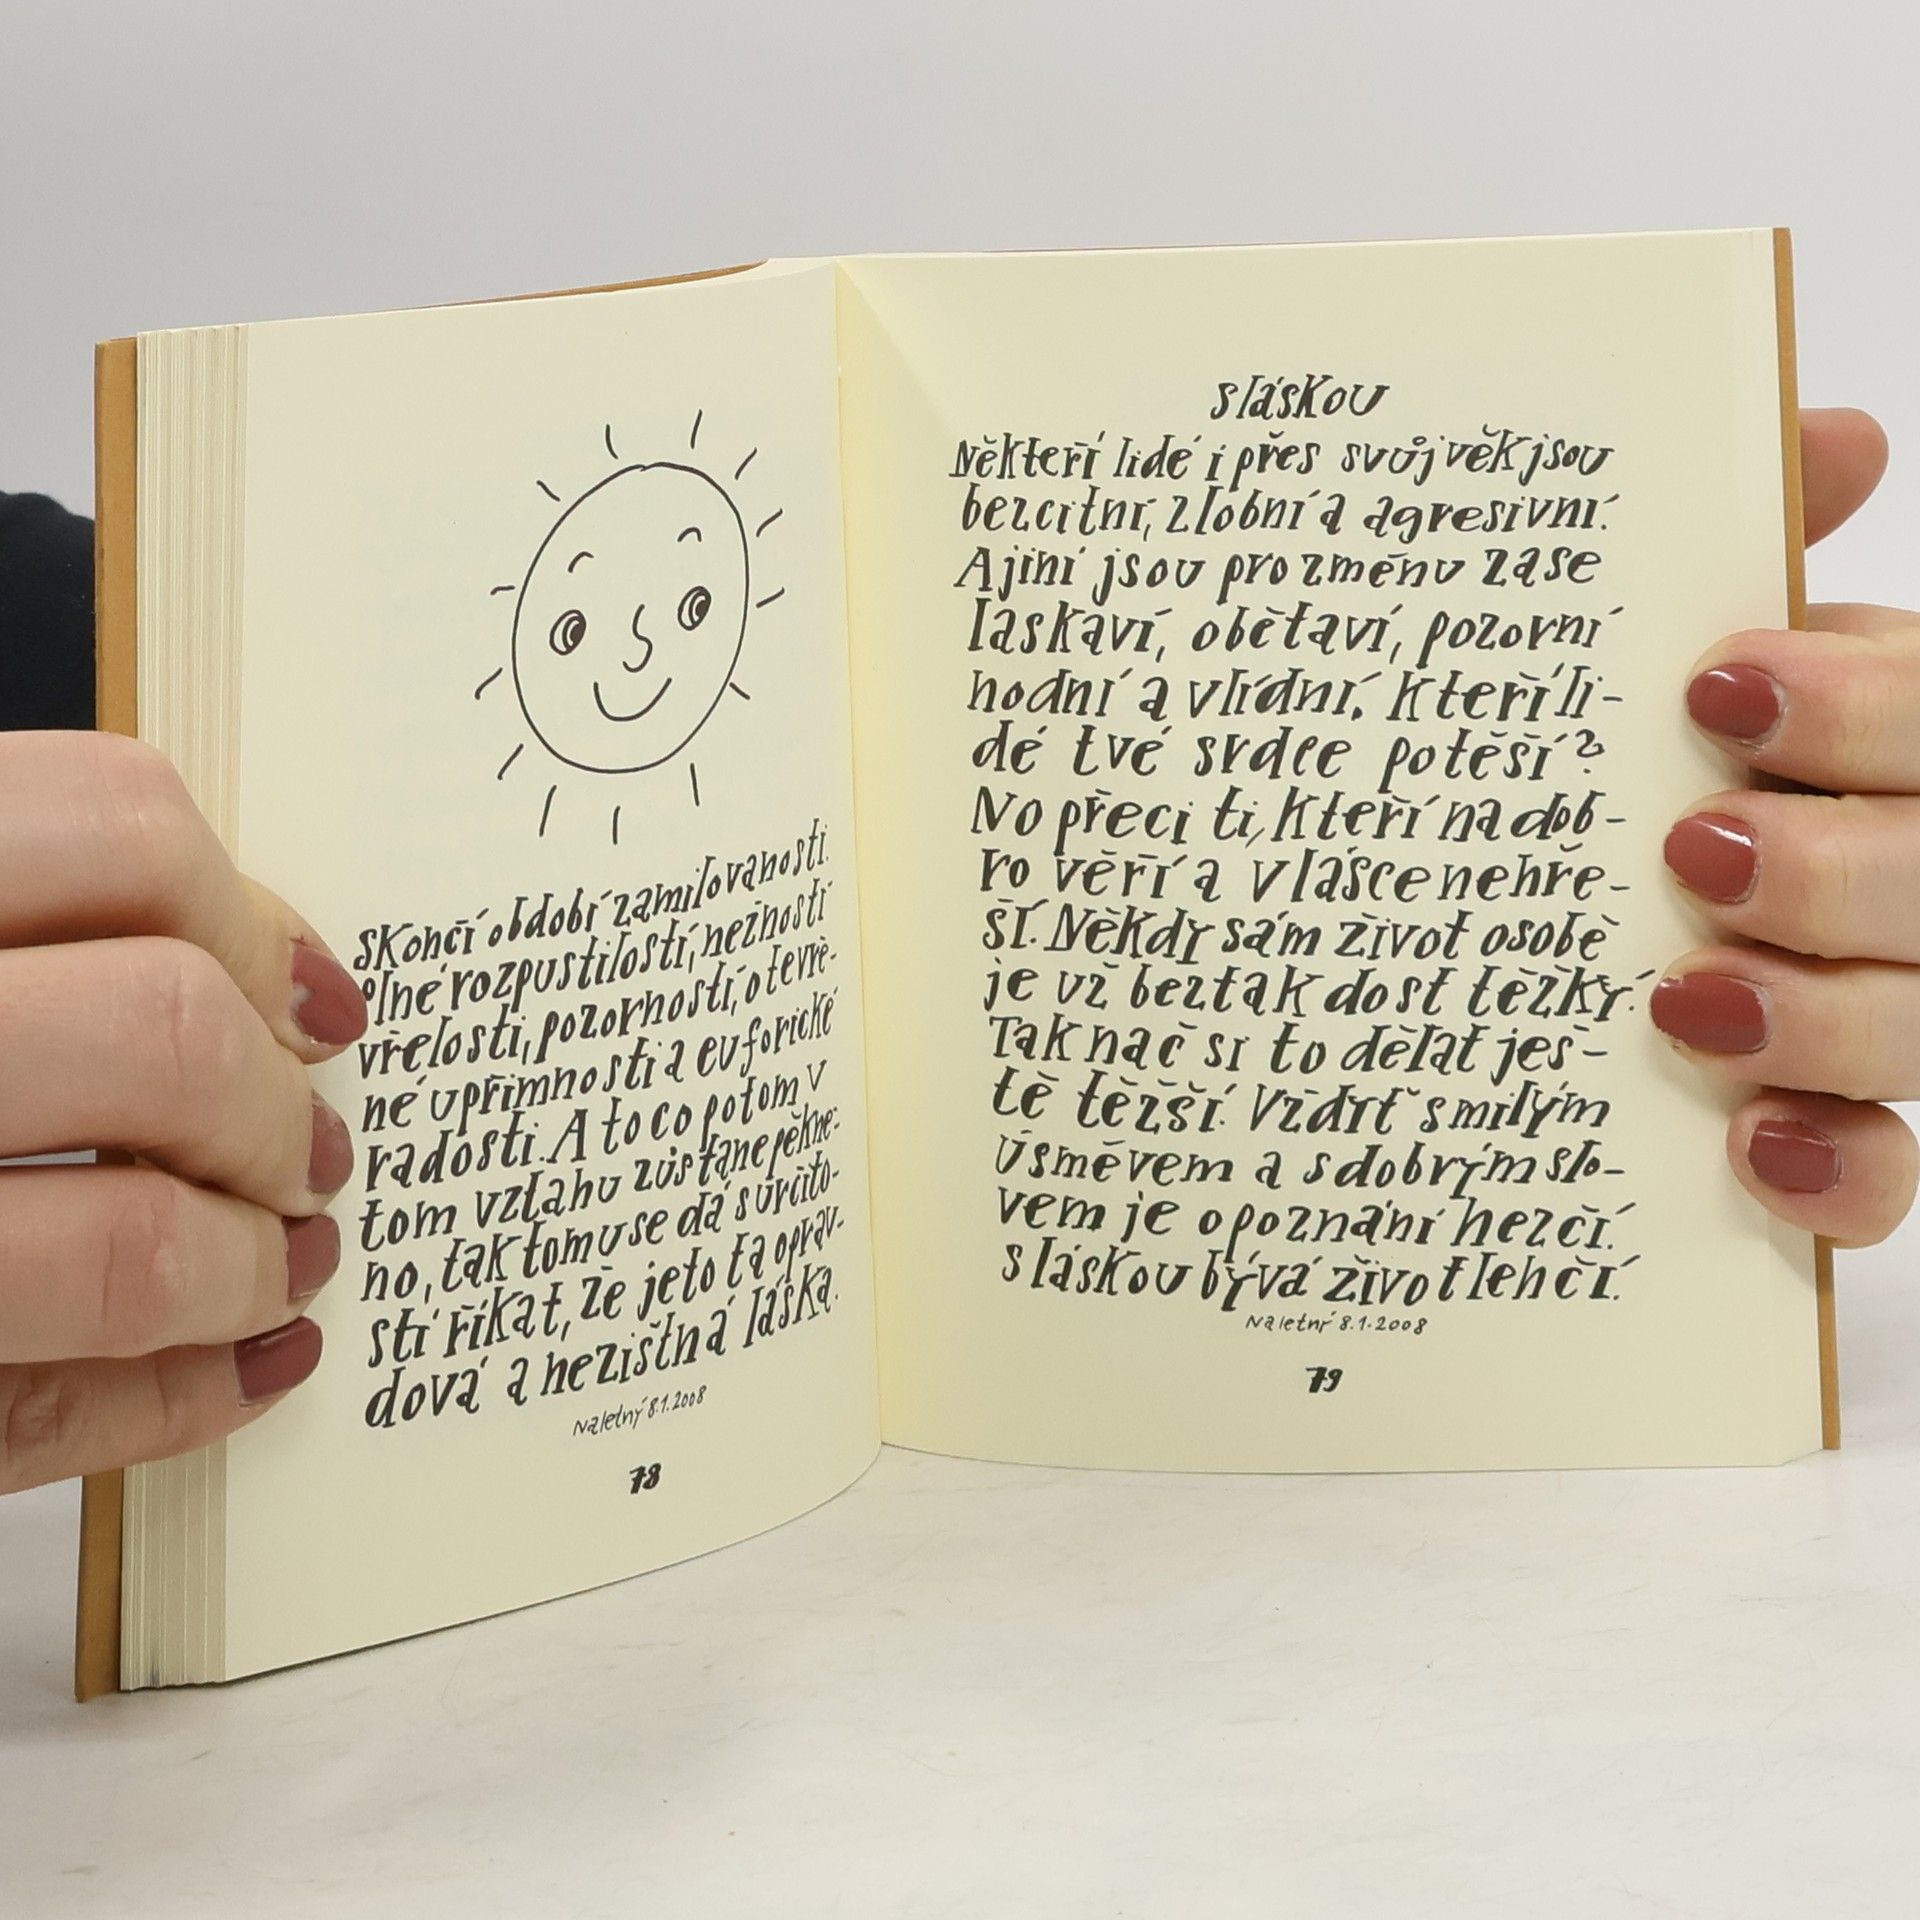 skončí období zamilovanosti
plné rozpustilosti, nežnosti
vřelosti, pozornosti, otevře-
né upřímnosti a euforické
radosti. A to co potom v
tom vztahu zůstane pěkné-
no, tak tomu se dá s určito-
stí říkat, že jeto ta oprav-
dová a nezištná láska.
Naletný 8.1.2008
78
s láskou
Někteří lidé i přes svůj věk jsou
bezcitní, zlobní a agresivní.
A jiní jsou pro změnu zase
laskaví, obětaví, pozorní
hodní a vlídní. Kteří li-
dé tvé srdce potěší?
No přeci ti, kteří na dob-
ro věří a v lásce nehře-
ší. Někdy sám život osobě
je už beztak dost těžký.
Tak nač si to dělat ješ-
tě těžší. Vždyť s milým
úsměvem a s dobrým slo-
vem je o poznání hezčí.
s láskou bývá život lehčí.
Naletný 8.1.2008
79